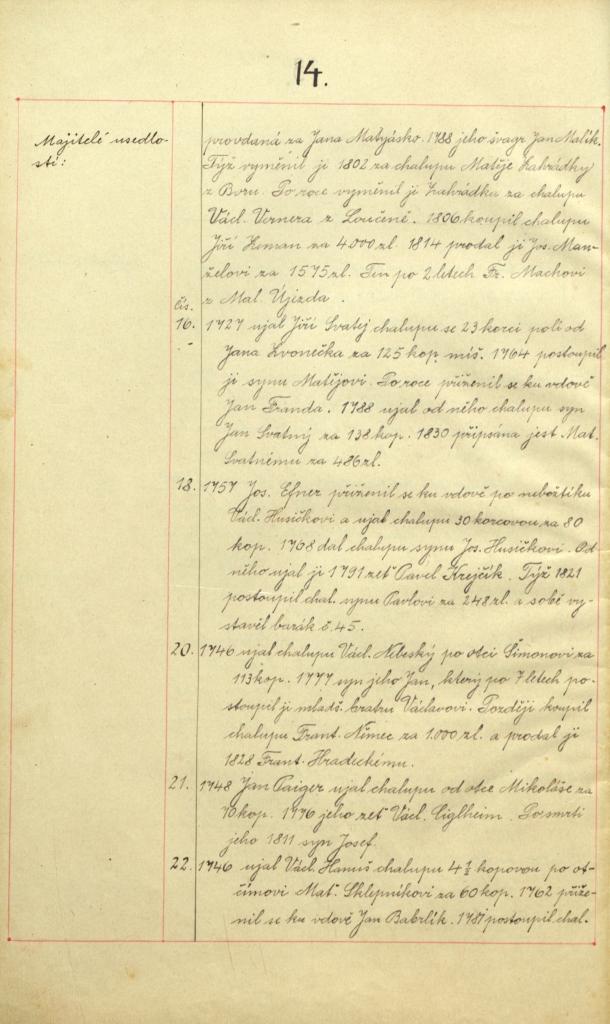 14.
Majitelé usedlo-
sti:
provdaná za Jana Matyásko. 1788 jeho švagr Jan Malík.
Týž vyměnil ji 1802 za chalupu Matěje Zahrádky
z Boru. Po roce vyměnil ji Zahrádka za chalupu
Václ. Vernera z Loučené. 1806 koupil chalupu
Jiří Zeman za 4000 zl. 1814 prodal ji Jos. Man-
želovi za 1575 zl. Ten po 2 letech Fr. Machovi
z Mal. Újezda.
čís.
16. 1727 ujal Jiří Svatej chalupu se 23 korci polí od
Jana Zvonečka za 125 kop. míš. 1764 postoupil
ji synu Matějovi. Po roce přiženil se ku vdově
Jan Franda. 1788 ujal od něho chalupu syn
Jan Svatný za 138 kop. 1830 připsána jest Mat.
Svatnému za 486 zl.
18. 1757 Jos. Efner přiženil se ku vdově po nebožtíku
Václ. Husičkovi a ujal chalupu 30 korcovou za 80
kop. 1768 dal chalupu synu Jos. Husičkovi. Od
něho ujal ji 1791 zeť Pavel Krejčík. Týž 1821
postoupil chal. synu Pavlovi za 248 zl. a sobě vy-
stavil barák č. 45.
20. 1746 ujal chalupu Václ. Nebeský po otci Šimonovi za
113 kop. 1777 syn jeho Jan, který po 7 letech po-
stoupil ji mladš. bratru Václavovi. Později koupil
chalupu Frant. Němec za 1.000 zl. a prodal ji
1828 Frant. Hradeckému.
21. 1748 Jan Paiger ujal chalupu od otce Mikoláše za
70 kop. 1776 jeho zeť Václ. Ciglheim. Po smrti
jeho 1811 syn Josef.
22. 1746 ujal Václ. Hanuš chalupu 4½ kopovou po ot-
čímovi Mat. Sklepníkovi za 60 kop. 1762 přiže-
nil se ku vdově Jan Babrlík. 1781 postoupil chal.